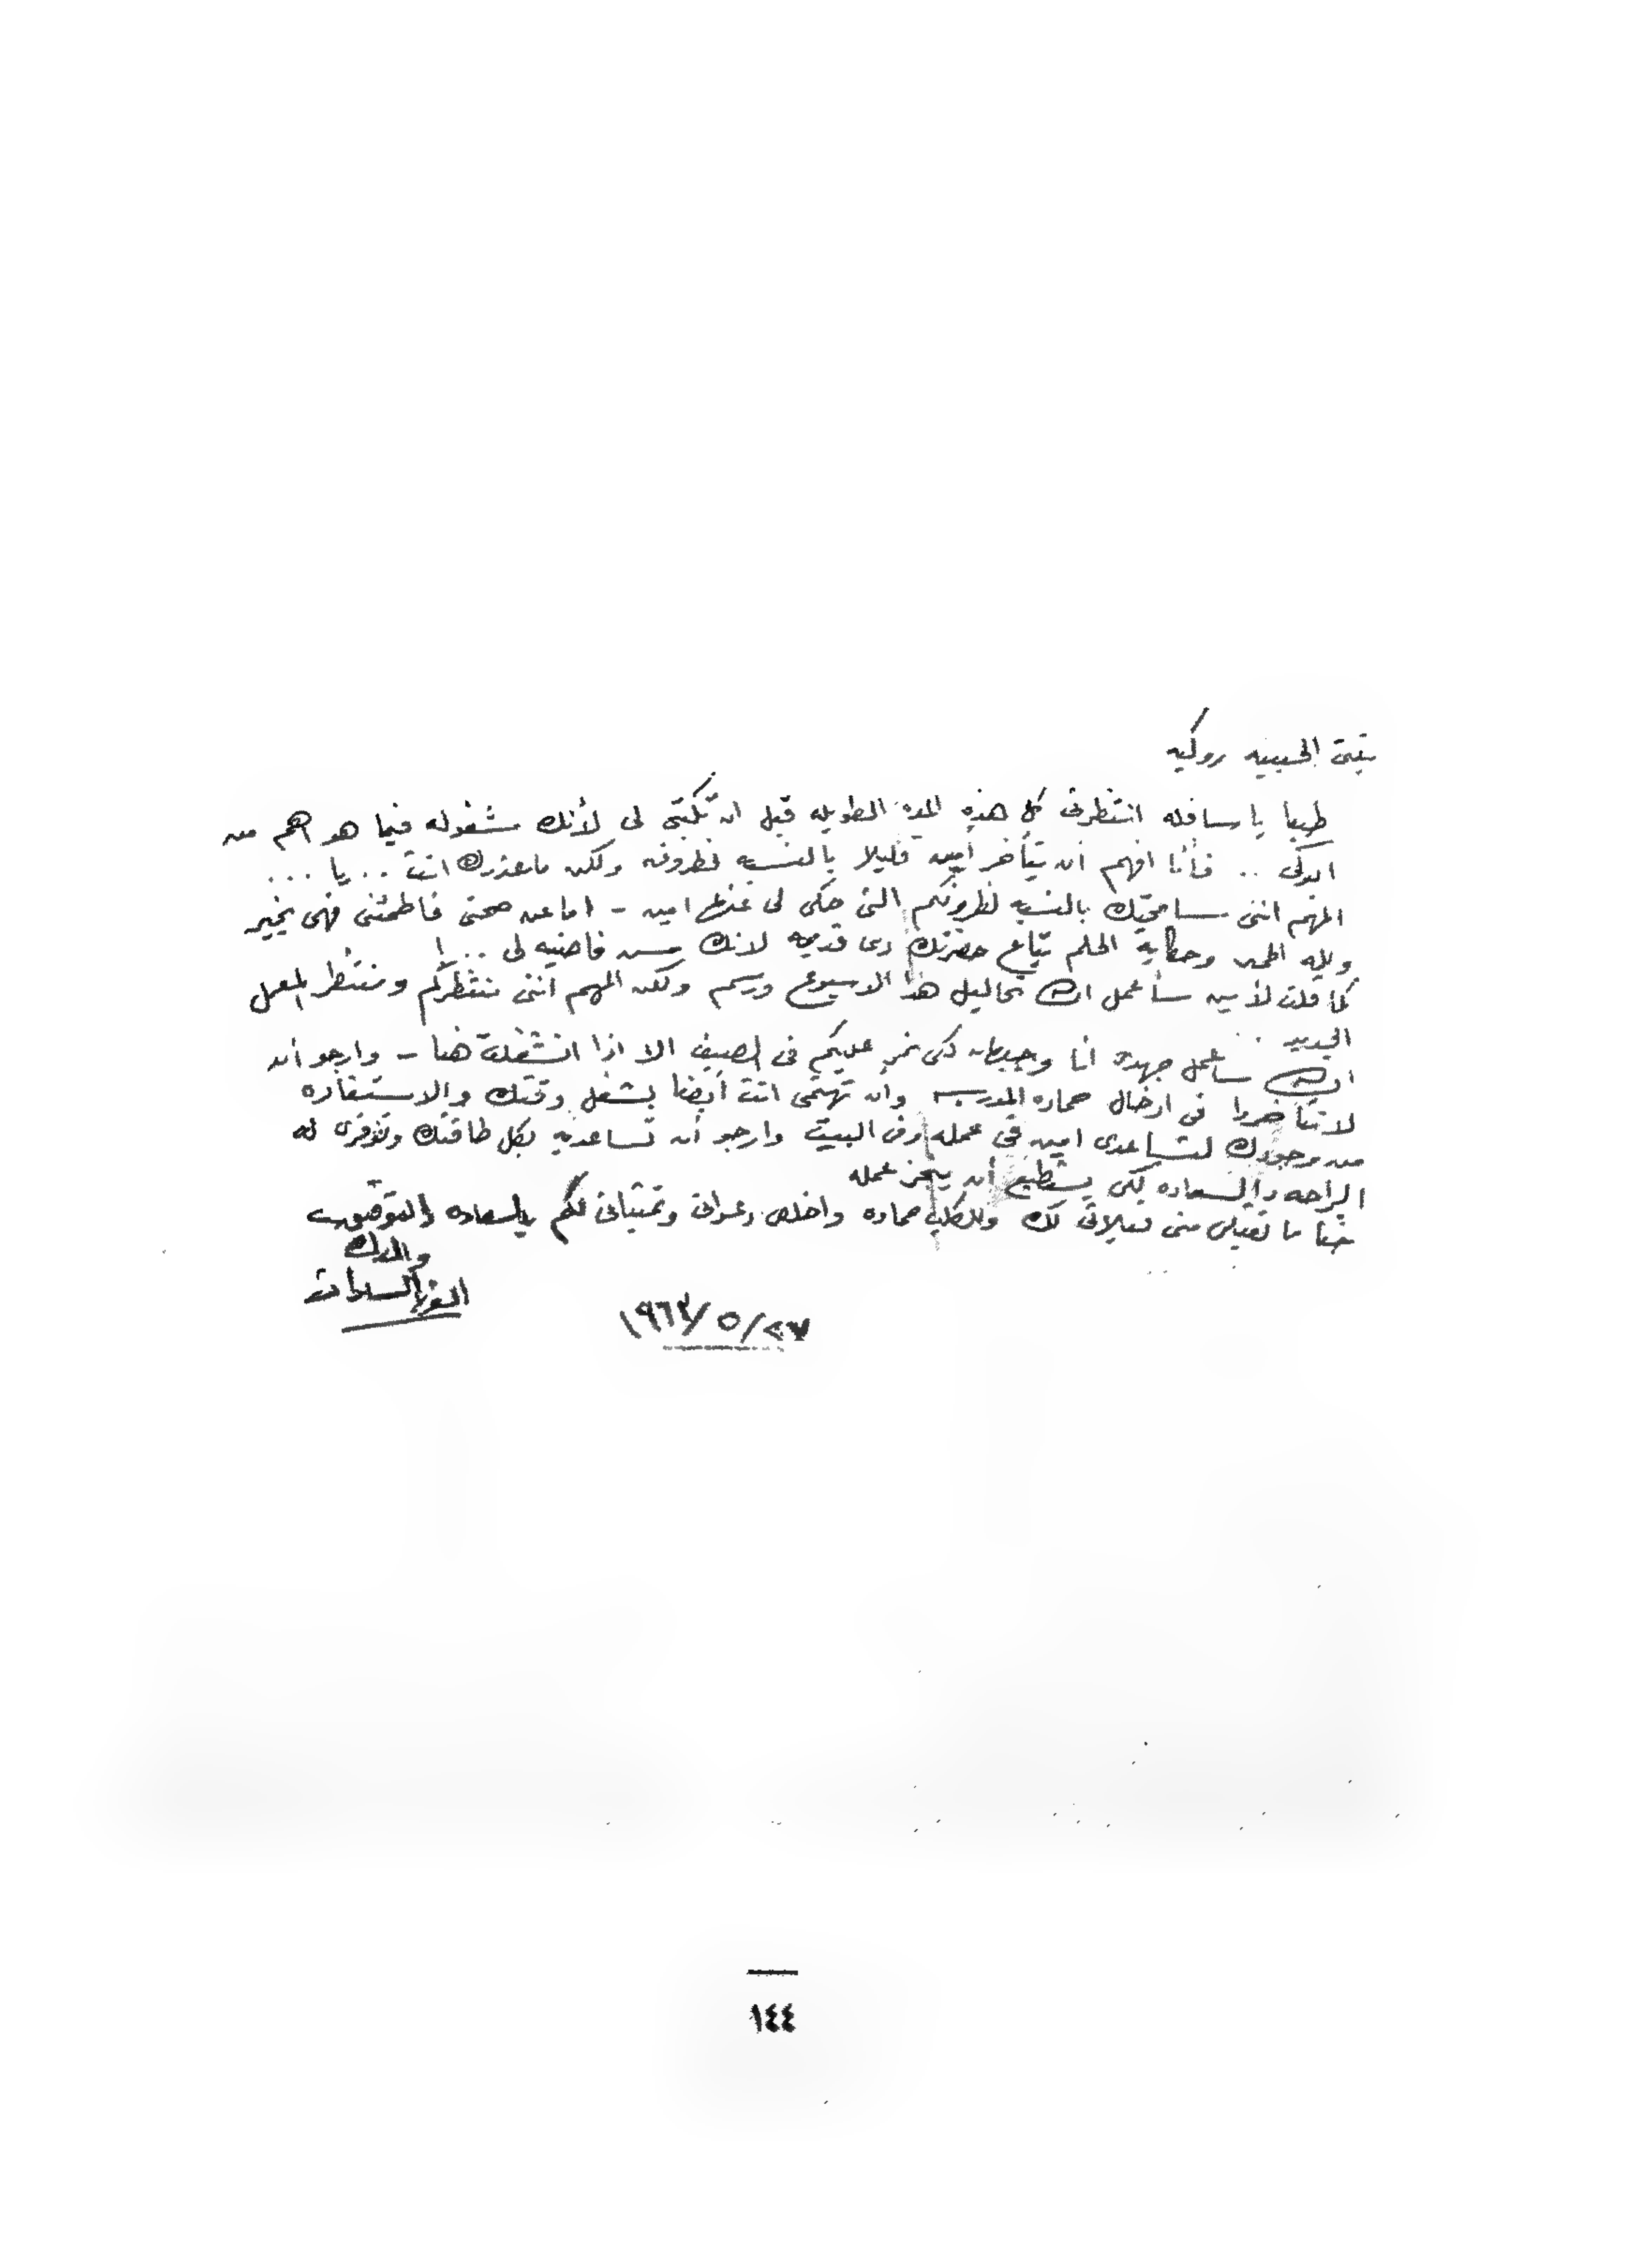 بنتى الحبيبه روكيه
طبعا يا سافله انتظرتى كل هذه المده الطويله قبل ان تكتبى لى لأنك مشغوله فيما هو اهم من
ابوكى .. فأنا افهم ان يتأخر أمين قليلا بالنسبه لظروفه ولكن ما عذرك انت .. يا ...
المهم اننى سامحتك بالنسبه لظروفكم التى حكى لى عنها امين - اما عن صحتى فاطمئنى فهى بخير
ولله الحمد وحكاية الحلم بتاع حضرتك دى قديمه لانك مش فاضيه لى .. !
كما قلت لأمين سأعمل ان شاء الله تحاليل هذا الاسبوع ورسم ولكن المهم اننى منتظركم ومنتظر المعمل
الجديد ..
ان شاء الله ساعمل جهدى أنا وجيهان لكى نمر عليكم فى الصيف الا اذا انشغلت هنا - وارجو أن
لا تتأخروا فى ادخال حماده المدرسه وان تهتمى انت أيضا بشغل وقتك والاستفاده
من وجودك لتساعدى امين فى عمله وفى البيت وارجو أن تساعديه بكل طاقتك وتوفرى له
الراحه والسعاده لكى يستطيع أن ينجز عمله
ختاما تقبلى منى قبلاتى لك وللكلب حماده واخلص دعواتى وتمنياتى لكم بالسعاده والتوفيق
والدك
أنور السادات
٢٧/٥/١٩٦٣
١٤٤